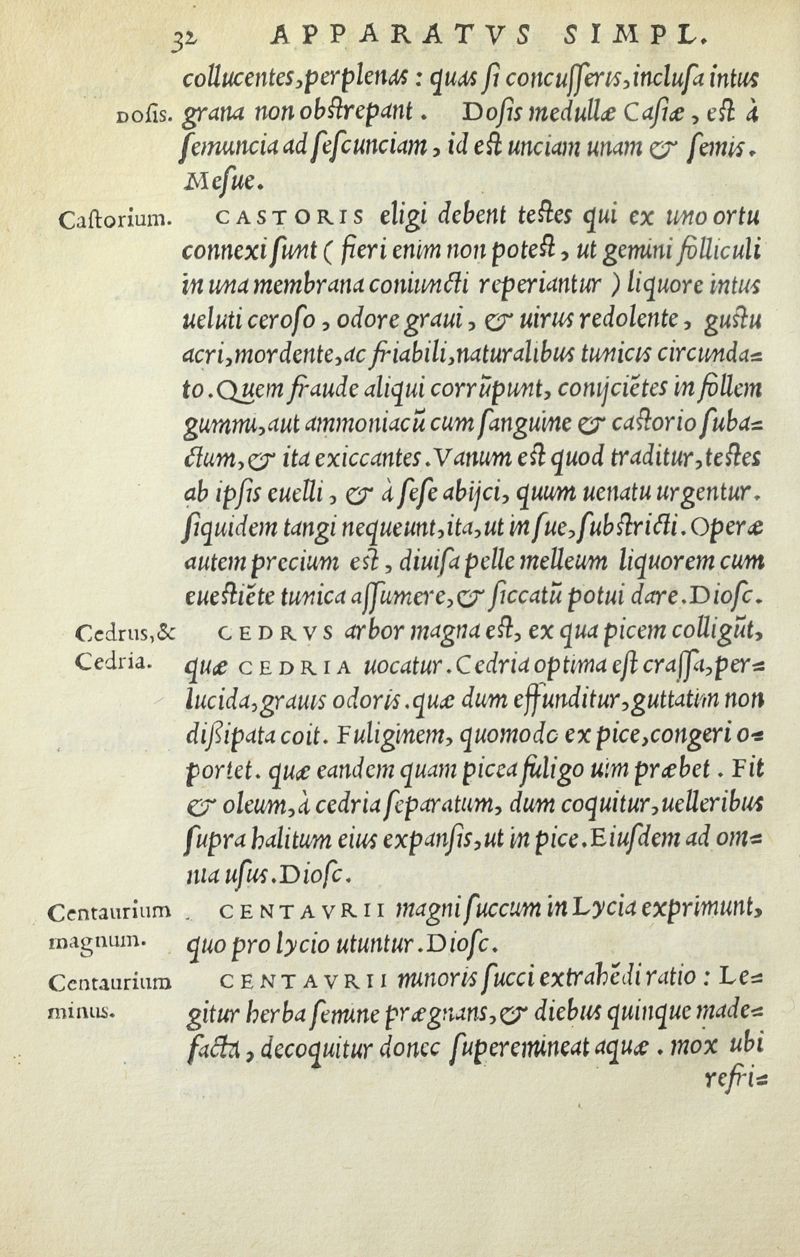 32 APPARATVS SIMPL.
collucentes,perplenas : quas ſi concuſſeris,incluſa intus
Doſis. grana non obſtrepant. Doſis medullæ Caſiæ, eſt à
ſemuncia ad ſeſcunciam, id eſt unciam unam & ſemis.
Meſue.
Caſtorium. CASTORIS eligi debent teſtes qui ex uno ortu
connexi ſunt ( fieri enim non poteſt, ut gemini folliculi
in una membrana coniuncti reperiantur ) liquore intus
ueluti ceroſo, odore graui, & uirus redolente, guſtu
acri,mordente,ac friabili,naturalibus tunicis circunda=
to. Quem fraude aliqui corrūpunt, conijciētes in follem
gummi,aut ammoniacū cum ſanguine & caſtorio ſuba=
ctum,& ita exiccantes. Vanum eſt quod traditur,teſtes
ab ipſis euelli, & à ſeſe abijci, quum uenatu urgentur.
ſiquidem tangi nequeunt,ita,ut in ſue,ſubſtricti. Operæ
autem precium eſt, diuiſa pelle melleum liquorem cum
eueſtiēte tunica aſſumere,& ſiccatū potui dare. Dioſc.
Cedrus,& CEDRVS arbor magna eſt, ex qua picem colligūt,
Cedria. quæ CEDRIA uocatur. Cedria optima eſt craſſa,per=
lucida,grauis odoris. quæ dum effunditur,guttatim non
diſsipata coit. Fuliginem, quomodo ex pice,congeri o=
portet. quæ eandem quam picea fuligo uim præbet. Fit
& oleum,à cedria ſeparatum, dum coquitur,uelleribus
ſupra halitum eius expanſis,ut in pice. Eiuſdem ad om=
nia uſus. Dioſc.
Centaurium CENTAVRII magni ſuccum in Lycia exprimunt,
magnum. quo pro lycio utuntur. Dioſc.
Centaurium CENTAVRII minoris ſucci extrahēdi ratio : Le=
minus. gitur herba ſemine prægnans,& diebus quinque made=
facta, decoquitur donec ſuperemineat aquæ. mox ubi
refri=